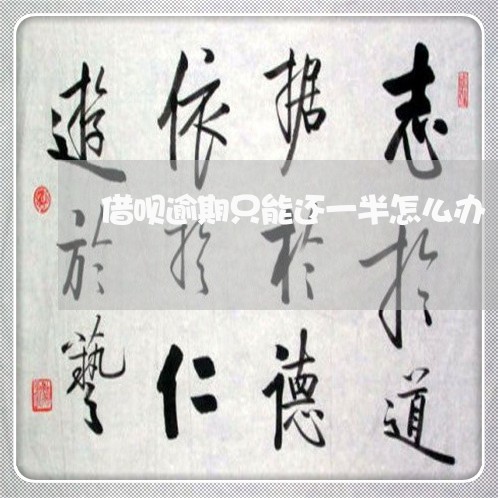 志於道
据於德
依於仁
遊於藝
借呗逾期只能还一半怎么办